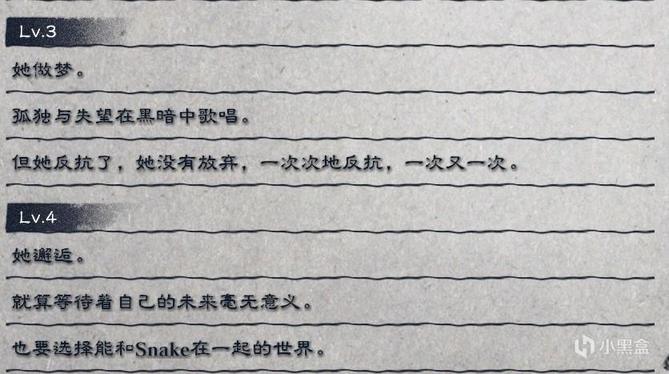 Lv.3
她做梦。
孤独与失望在黑暗中歌唱。
但她反抗了，她没有放弃，一次次地反抗，一次又一次。
Lv.4
她邂逅。
就算等待着自己的未来毫无意义。
也要选择能和Snake在一起的世界。
小黑盒